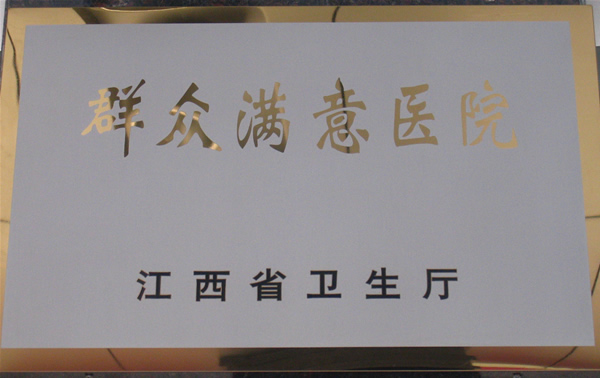 群众满意医院
江西省卫生厅